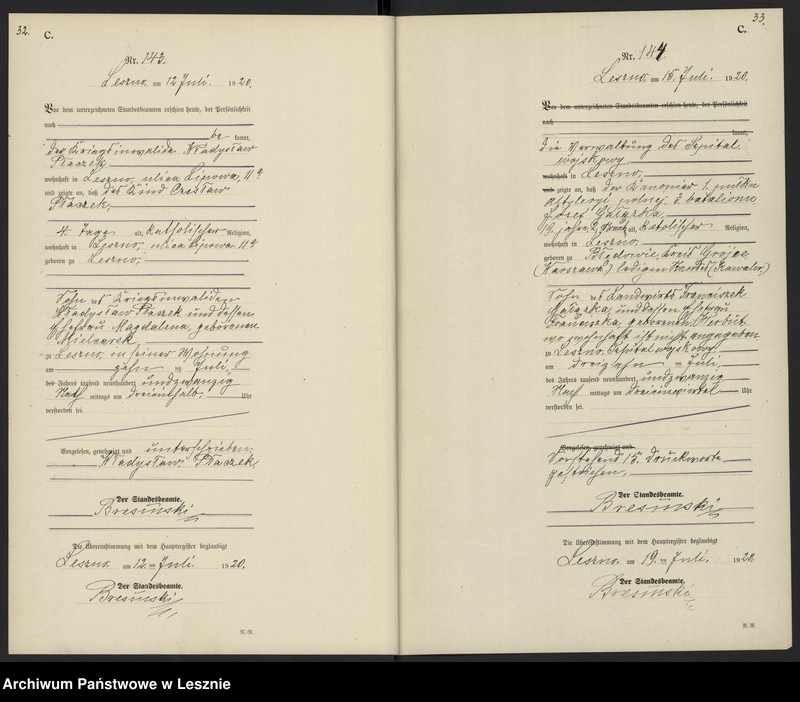 32.
C.
Nr. 143.
Leszno, am 12 Juli. 1920.
Vor dem unterzeichneten Standesbeamten erschien heute, der Persönlichkeit
nach
be kannt,
der Kriegsinvalide Władysław
Ptaczek
wohnhaft in Leszno, ulica Lipowa, 11a
und zeigte an, daß das Kind Czesław
Ptaczek,
4. Tage alt, Katholischer Religion,
wohnhaft in Leszno, ulica Lipowa 11a
geboren zu Leszno,
Sohn des Kriegsinvaliden
Władysław Ptaczek und dessen
Ehefrau Magdalena, geborenen
Mielcarek
zu Leszno, in seiner Wohnung
am zehn ten Juli,
des Jahres tausend neunhundert undzwanzig
Nach mittags um dreieinhalb Uhr
verstorben sei.
Vorgelesen, genehmigt und unterschrieben,
Władysław Ptaczek,
Der Standesbeamte.
Bresinski
Die Übereinstimmung mit dem Hauptregister beglaubigt
Leszno, am 12. ten Juli. 1920.
Der Standesbeamte.
Bresinski
R.-R.
33.
C.
Nr. 144
Leszno, am 15. Juli. 1920.
Vor dem unterzeichneten Standesbeamten erschien heute, der Persönlichkeit
nach
kannt,
die Verwaltung des Szpital
wojskowy
wohnhaft in Leszno,
und zeigte an, daß der Kanonier 1. pułku
artyleryi polnej, 2. batalionu
Józef Gałązka,
19. Jahre 2, Monat alt, Katolischer Religion,
wohnhaft in Leszno,
geboren zu Błędowie, Kreis Grójec
(Warszawa) ledigen Standes (Kawaler)
Sohn des Landwirts Franciszek
Gałązka, und dessen Ehefrau
Franciszka, geborenen
wo wohnhaft ist nicht angegeben
zu Leszno, Szpital wojskowy,
am dreizehn ten Juli,
des Jahres tausend neunhundert undzwanzig
Nach mittags um dreieinviertel Uhr
verstorben sei.
Vorgelesen, genehmigt und
Vorstehend 15. Druckworte
gestrichen.
Der Standesbeamte.
Bresinski
Die Übereinstimmung mit dem Hauptregister beglaubigt
Leszno, am 19. ten Juli. 1920.
Der Standesbeamte.
Bresinski
R.-R.
Archiwum Państwowe w Lesznie